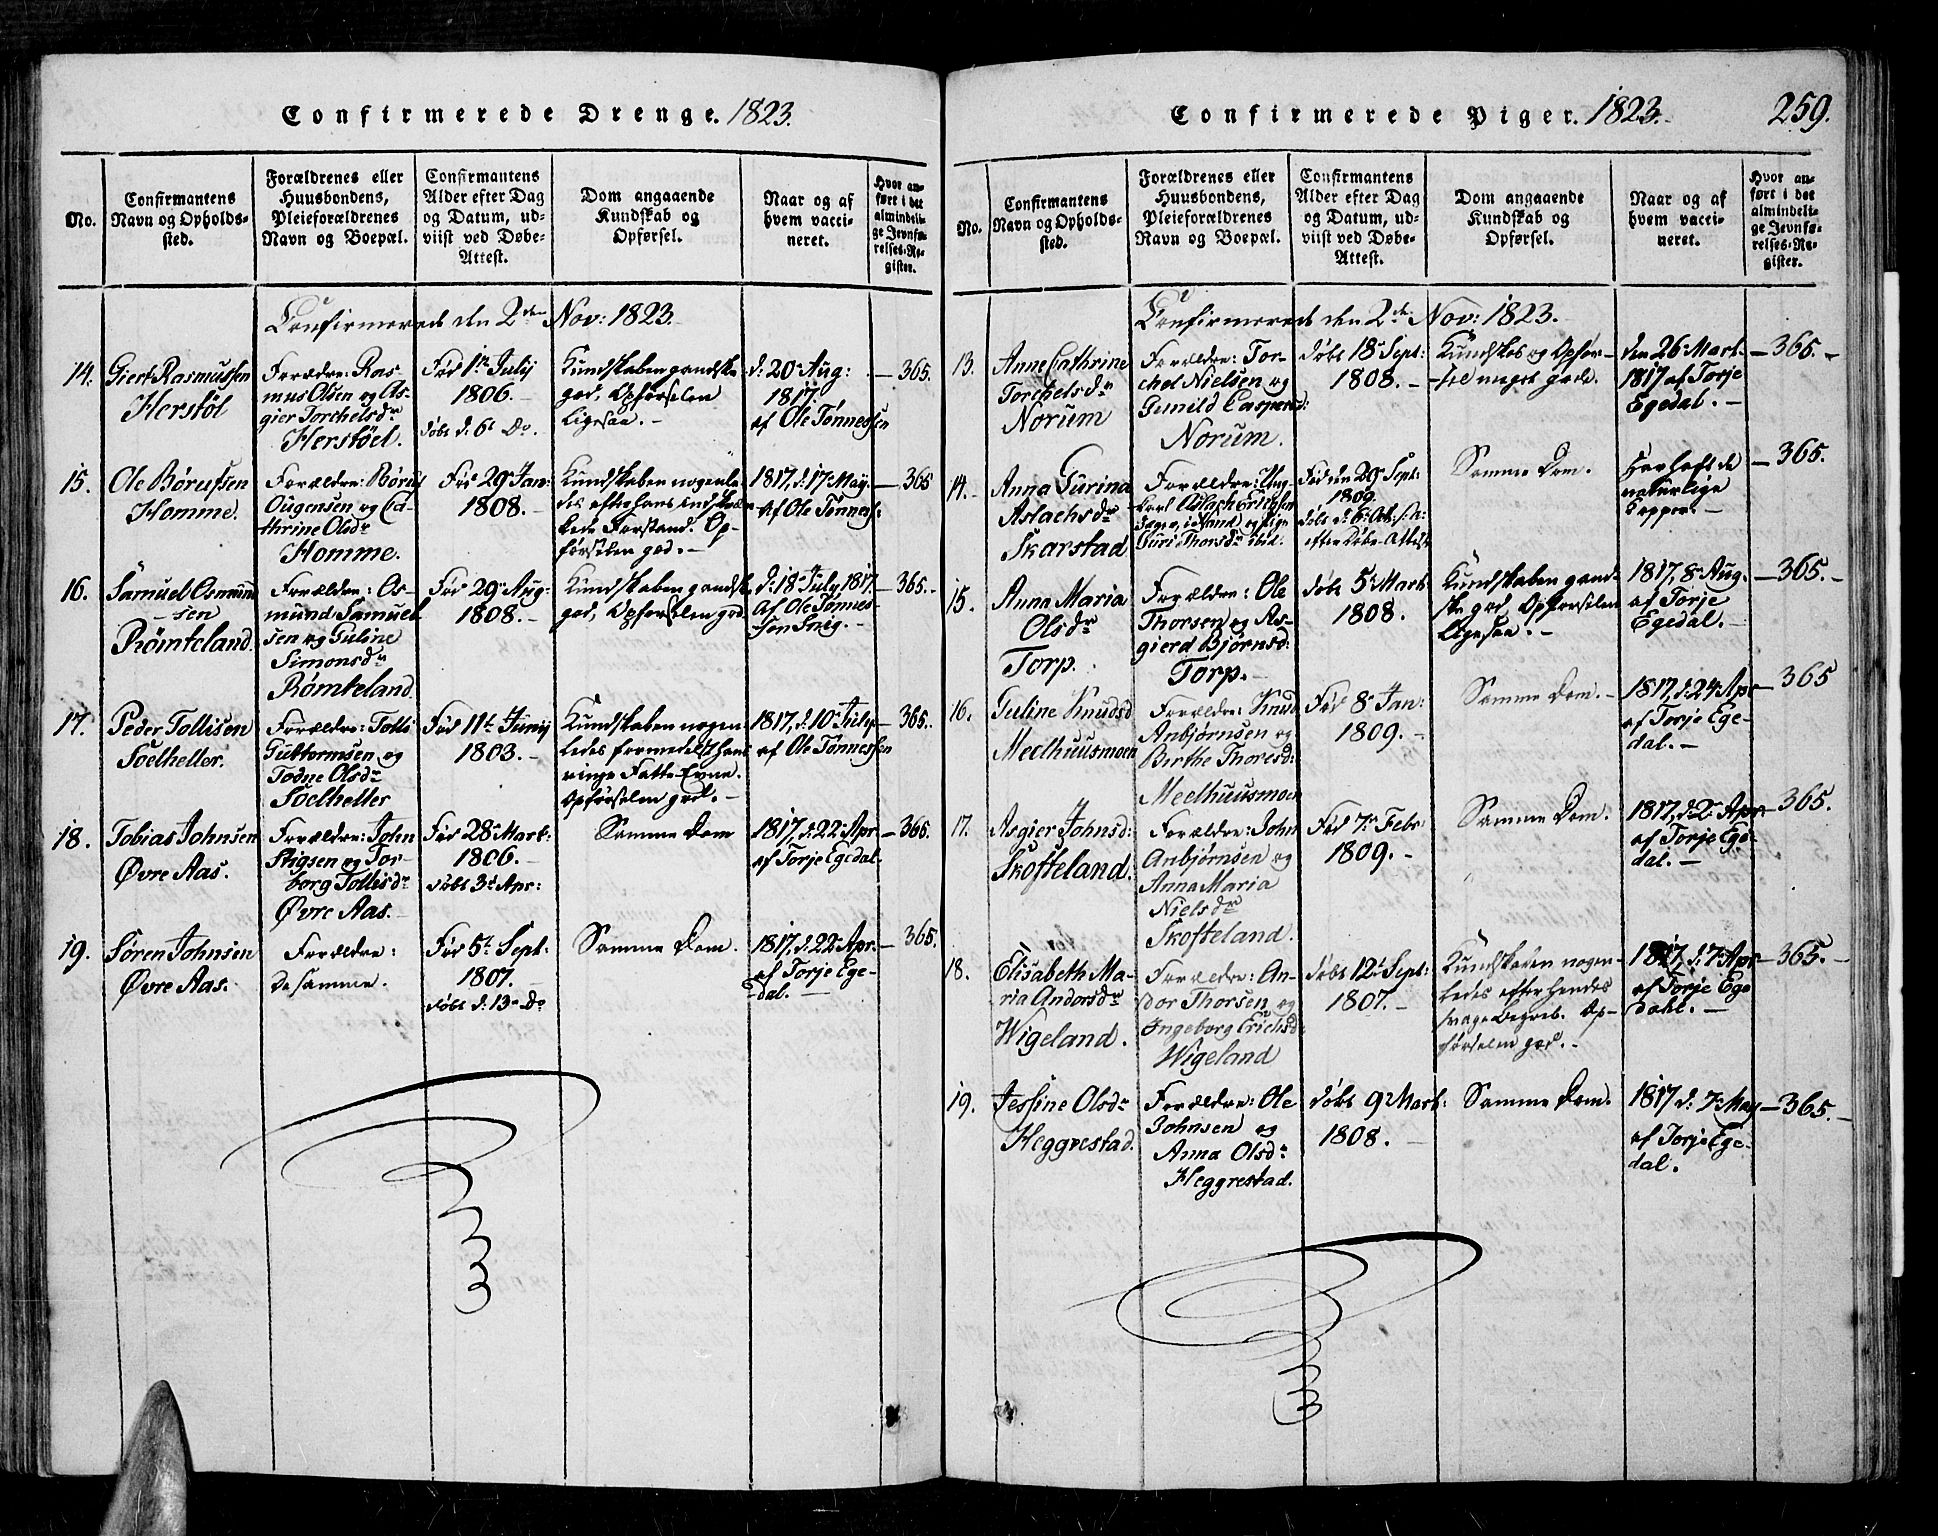 Confirmerede Drenge. 1823.
No.
Confirmantens
Navn og Opholds-
sted.
Forældrenes eller
Huusbondens,
Pleieforældrenes
Navn og Boepæl.
Confirmantens
Alder efter Dag
og Datum, ud-
viist ved Døbe-
Attest.
Dom angaaende
Kundskab og
Opførsel.
Naar og af
hvem vacci-
neret.
Hvor an-
ført i det
almindeli-
ge Jevnfø-
relses-Re-
gister.
Confirmerede den 2den Nov: 1823.
14.
Giert Rasmussen
Herstøl
Forældre: Ras-
mus Olsen og As-
gier Torchelsdr
Herstøel.
Fød 1te July
1806. -
døbt d. 6t Do.
Kundskaben gandske
god, Opførselen
ligesaa. -
d. 20 Aug:
1817.
af Ole Tønnessen
- 365.
15.
Ole Børufsen
Homme.
Forældre: Børuf
Ougensen og Ca-
thrine Olsdr
Homme.
Fød 29 Jan:
1808. -
Kundskaben nogenle-
des efter hans indskræn-
kede Forstand. Op-
førselen god. -
1817, d. 17 May.
af Ole Tønness:
- 365
16.
Samuel Osmund-
sen
Rømteland.
Forældre: Os-
mund Samuel-
sen og Guline
Simonsdr
Rømteland.
Fød 29 Aug:
1808. -
Kundskaben gandske
god, Opførselen god.
d. 18 July 1817.
af Ole Tønnes-
sen Snig. -
365. -
17.
Peder Tollisen
Soelheller.
Forældre: Tolli
Guttormsen og
Todne Olsdr
Soelheller
Fød 11te Juny
1803. -
Kundskaben nogen-
ledes formedelst hans
ringe Fatte-Evne.
Opførselen god. -
1817, d. 10 July
af Ole Tønnessen
- 365.
18.
Tobias Johnsen
Øvre Aas.
Forældre: John
Stigsen og Tor-
borg Tollisdr
Øvre Aas.
Fød 28 Mart:
1806. -
døbt 3d Apr:
Samme Dom
1817. d. 22 Apr
af Torje Egedal.
- 365.
19.
Søren Johnsen
Øvre Aas.
Forældre:
De samme.
Fød 5t Sept:
1807.
døbt d. 13 Do
Samme Dom.
1817, d. 22 Apr.
af Torje Ege-
dal. -
- 365.
Confirmerede Piger. 1823.
259.
No.
Confirmantens
Navn og Opholds-
sted.
Forældrenes eller
Huusbondens,
Pleieforældrenes
Navn og Boepæl.
Confirmantens
Alder efter Dag
og Datum, ud-
viist ved Døbe-
Attest.
Dom angaaende
Kundskab og
Opførsel.
Naar og af
hvem vacci-
neret.
Hvor an-
ført i det
almindeli-
ge Jevnfø-
relses-Re-
gister.
Confirmerede den 2de Nov: 1823.
13.
Anne Cathrine
Torchelsdr
Norum
Forældre: Tor-
chel Nielsen og
Gunild Caspersd:
Norum.
døbt 18 Sept:
1808. -
Kundskab og Opfør-
sel meget gode.
den 26 Mart.
1817 af Torje
Egedal. -
- 365. -
14.
Anna Gurina
Aslachsdr
Skarstad
Forældre: Ung-
karl Aslach Erichsen
og Pige
Guri Thorsdr ibid.
Fød den 29 Sept:
1809.
døbt d. 6 Oct:
efter Døbe-Attest
Samme Dom.
Har haft de
naturlige
Kopper. -
- 365.
15.
Anna Maria
Olsdr
Torp.
Forældre: Ole
Thorsen og As-
gierd Bjørnsd:
Torp. -
døbt 5 Mart:
1808.
Kundskaben gand-
ske god, Opførselen
ligesaa. -
1817, 8 Aug.
af Torje
Egedal. -
- 365. -
16.
Guline Knudsd
Meelhuusmoen
Forældre: Knud
Anbjørnsen og
Birthe Thoresd:
Meelhuusmoen
Fød 8 Jan:
1809. -
Samme Dom. -
1817, d. 24 Apr
af Torje Ege-
dal. -
- 365
17.
Asgier Johnsd:
Skofteland.
Forældre: John
Anbjørnsen og
Anna Maria
Nielsdr
Skofteland.
Fød 7 Febr:
1809. -
Samme Dom.
1817, d. 2 Apr
af Torje Ege-
dal. -
- 365.
18.
Elisabeth Ma-
ria Andorsdr
Wigeland.
Forældre: An-
dor Thorsen og
Ingeborg Erichsd:
Wigeland
døbt 12 Sept:
1807. -
Kundskaben nogen-
ledes efter hendes
svage Begreb. Op-
førselen god. -
1817, d. 7 Apr
af Torje Ege
dahl. -
- 365. -
19.
Jessine Olsdr
Heggrestad.
Forældre: Ole
Johnsen og
Anna Olsdr
Heggrestad.
døbt 9 Mart:
1808. -
Samme Dom.
1817 d. 7 May
af Torje Ege-
dal.
- 365. -